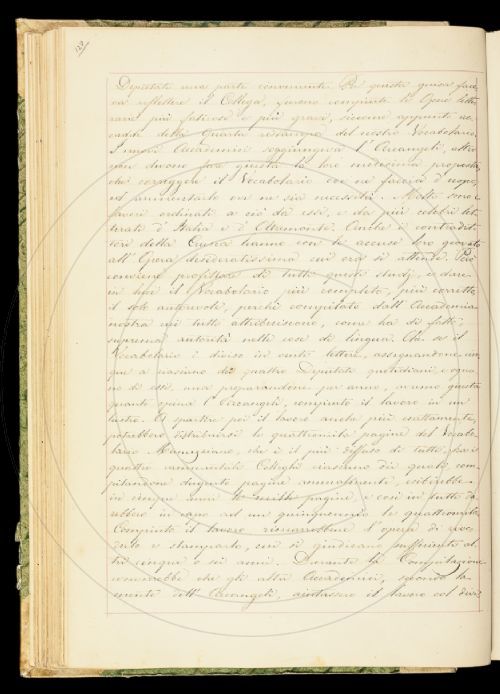 129
Deputati una parte conveniente. Per questa guisa face-
va riflettere il Collega, furono compiute le Opere lette-
rarie più faticose e più gravi, siccome appunto ac-
cadde della Quarta ristampa del nostro Vocabolario.
I nuovi Accademici soggiungeva l'Arcangeli, altro
non devono fare questa la loro medesima proposta,
che correggere il Vocabolario ove ne faccia d'uopo,
ed aumentarlo ove ne sia necessità. Molti sono i
lavori ordinati a ciò da essi, e da più celebri let-
terati d'Italia e d'Oltremonte. Anche i contradit-
tori della Crusca hanno con le accuse loro giovato
all'Opera desideratissima cui era si attende. Però
conviene profittare di tutti questi studj, e dare
in luce il Vocabolario più completo, più corretto,
il solo autorevole, perchè compilato dall'Accademia
nostra cui tutti attribuiscono, come ha di fatto,
suprema autorità nelle cose di lingua. Che se il
Vocabolario è diviso in venti lettere, assegnandone cin-
que a ciascuno dei quattro Deputati quotidiani, e ognu-
no di essi, una preparandone per anno, avremo questa
quanto spera l'Arcangeli, compiuto il lavoro in un
lustro. A spartire poi il lavoro anche più esattamente,
potrebbero distribuirsi le quattromila pagine del Vocabo-
lario Manuzziano, che è il più diffuso di tutti, fra i
quattro nominati Colleghi ciascuno dei quali com-
pilandone dugento pagine annualmente, esibirebbe
in cinque anni le mille pagine, e così in tutto da-
rebbero in capo ad un quinquennio le quattromila.
Compiuto il lavoro rimarrebbe l'opera di rive-
derlo e stamparlo, cui si giudicano sufficienti al-
tri cinque o sei anni. Durante la Compilazione
converrebbe che gli altri Accademici, secondo la
mente dell'Arcangeli, aiutassero il lavoro col dire